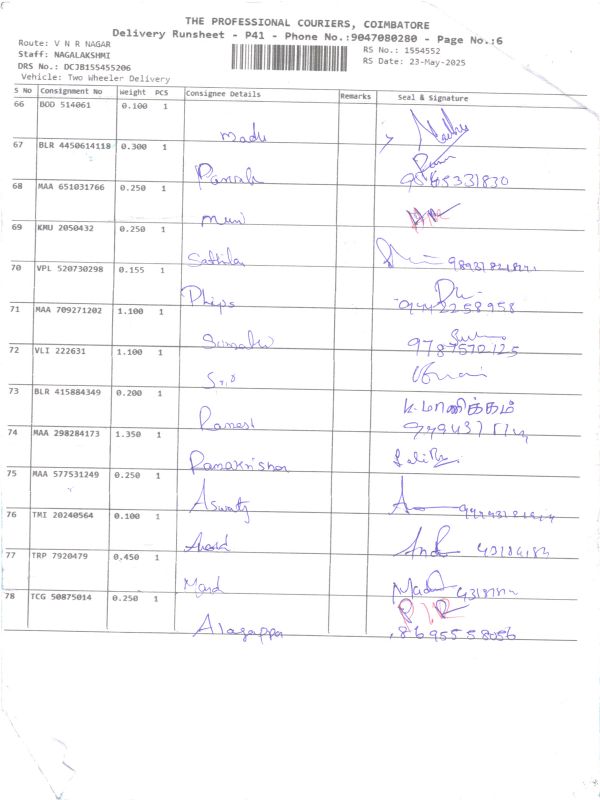 THE PROFESSIONAL COURIERS, COIMBATORE
Delivery Runsheet - P41 - Phone No.:9047080280 - Page No.:6
Route: V N R NAGAR
Staff: NAGALAKSHMI
DRS No.: DCJB155455206
Vehicle: Two Wheeler Delivery
RS No.: 1554552
RS Date: 23-May-2025
S No Consignment No Weight PCS Consignee Details Remarks Seal & Signature
66 BOD 514061 0.100 1
Madu
67 BLR 4450614118 0.300 1
68 MAA 651031766 0.250 1
69 KMU 2050432 0.250 1
70 VPL 520730298 0.155 1
Phips 9442258958
71 MAA 709271202 1.100 1
9787570125
72 VLI 222631 1.100 1
73 BLR 415884349 0.200 1
k. மாணிக்கம்
Ramesh
74 MAA 298284173 1.350 1
Ramakrishna
75 MAA 577531249 0.250 1
76 TMI 20240564 0.100 1
Anand
77 TRP 7920479 0,450 1
78 TCG 50875014 0.250 1
Alagappa 8695558056